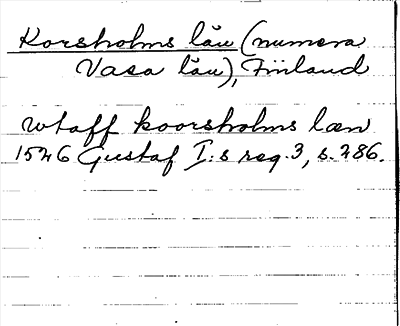 Korsholms län (numera
Vasa län), Finland
utaff koorsholms læn
1526 Gustaf I:s reg. 3, s. 286.